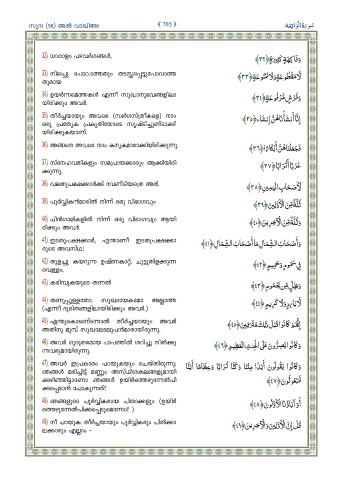 സൂറഃ (56) അൽ വാഖിഅഃ ﴾ 705 ﴿ سورة الواقعة
32) ധാരാളം പഴവർഗങ്ങൾ, وَفَاكِهَةٍ كَثِيرَةٍ ﴿٣٢﴾
33) നിലച്ചു പോവാത്തതും തടസ്സപ്പെട്ടുപോവാത്ത لَا مَقْطُوعَةٍ وَلَا مَمْنُوعَةٍ ﴿٣٣﴾
തുമായ
34) ഉയർന്നമെത്തകൾ എന്നീ സുഖാനുഭവങ്ങളിലാ وَفُرُشٍ مَرْفُوعَةٍ ﴿٣٤﴾
യിരിക്കും അവർ.
35) തീർച്ചയായും അവരെ (സ്വർഗസ്ത്രീകളെ) നാം إِنَّا أَنْشَأْنَاهُنَّ إِنْشَاءً ﴿٣٥﴾
ഒരു പ്രത്യേക പ്രകൃതിയോടെ സൃഷ്ടിച്ചുണ്ടാക്കി
യിരിക്കുകയാണ്.
36) അങ്ങനെ അവരെ നാം കന്യകമാരാക്കിയിരിക്കുന്നു. فَجَعَلْنَاهُنَّ أَبْكَارًا ﴿٣٦﴾
37) സ്നേഹവതികളും സമപ്രായക്കാരും ആക്കിയിരി عُرُبًا أَتْرَابًا ﴿٣٧﴾
ക്കുന്നു.
38) വലതുപക്ഷക്കാർക്ക് വേണ്ടിയത്രെ അത്. لِأَصْحَابِ الْيَمِينِ ﴿٣٨﴾
39) പൂർവ്വികൻമാരിൽ നിന്ന് ഒരു വിഭാഗവും ثُلَّةٌ مِنَ الْأَوَّلِينَ ﴿٣٩﴾
40) പിൻഗാമികളിൽ നിന്ന് ഒരു വിഭാഗവും ആയി وَثُلَّةٌ مِنَ الْآخِرِينَ ﴿٤٠﴾
രിക്കും അവർ.
41) ഇടതുപക്ഷക്കാർ, എന്താണീ ഇടതുപക്ഷക്കാ وَأَصْحَابُ الشِّمَالِ مَا أَصْحَابُ الشِّمَالِ ﴿٤١﴾
രുടെ അവസ്ഥ!
42) തുളച്ചു കയറുന്ന ഉഷ്ണകാറ്റ്, ചുട്ടുതിളക്കുന്ന فِي سَمُومٍ وَحَمِيمٍ ﴿٤٢﴾
വെള്ളം,
43) കരിമ്പുകയുടെ തണൽ وَظِلٍّ مِنْ يَحْمُومٍ ﴿٤٣﴾
44) തണുപ്പുള്ളതോ, സുഖദായകമോ അല്ലാത്ത لَا بَارِدٍ وَلَا كَرِيمٍ ﴿٤٤﴾
(എന്നീ ദുരിതങ്ങളിലായിരിക്കും അവർ.)
45) എന്തുകൊണ്ടെന്നാൽ തീർച്ചയായും അവർ إِنَّهُمْ كَانُوا قَبْلَ ذَلِكَ مُتْرَفِينَ ﴿٤٥﴾
അതിനു മുമ്പ് സുഖലോലുപൻമാരായിരുന്നു.
46) അവർ ഗുരുതരമായ പാപത്തിൽ ശഠിച്ചു നിൽക്കു وَكَانُوا يُصِرُّونَ عَلَى الْحِنْثِ الْعَظِيمِ ﴿٤٦﴾
ന്നവരുമായിരുന്നു.
47) അവർ ഇപ്രകാരം പറയുകയും ചെയ്തിരുന്നു: وَكَانُوا يَقُولُونَ أَئِذَا مِتْنَا وَكُنَّا تُرَابًا وَعِظَامًا أَإِنَّا
ഞങ്ങൾ മരിച്ചിട്ട് മണ്ണും അസ്ഥിശകലങ്ങളുമായി لَمَبْعُوثُونَ ﴿٤٧﴾
ക്കഴിഞ്ഞിട്ടാണോ ഞങ്ങൾ ഉയിർത്തെഴുന്നേൽപി
ക്കപ്പെടാൻ പോകുന്നത്?
48) ഞങ്ങളുടെ പൂർവ്വികരായ പിതാക്കളും (ഉയിർ أَوَآبَاؤُنَا الْأَوَّلُونَ ﴿٤٨﴾
ത്തെഴുന്നേൽപിക്കപ്പെടുമെന്നോ? )
49) നീ പറയുക: തീർച്ചയായും പൂർവ്വികരും പിൽക്കാ قُلْ إِنَّ الْأَوَّلِينَ وَالْآخِرِينَ ﴿٤٩﴾
ലക്കാരും എല്ലാം –